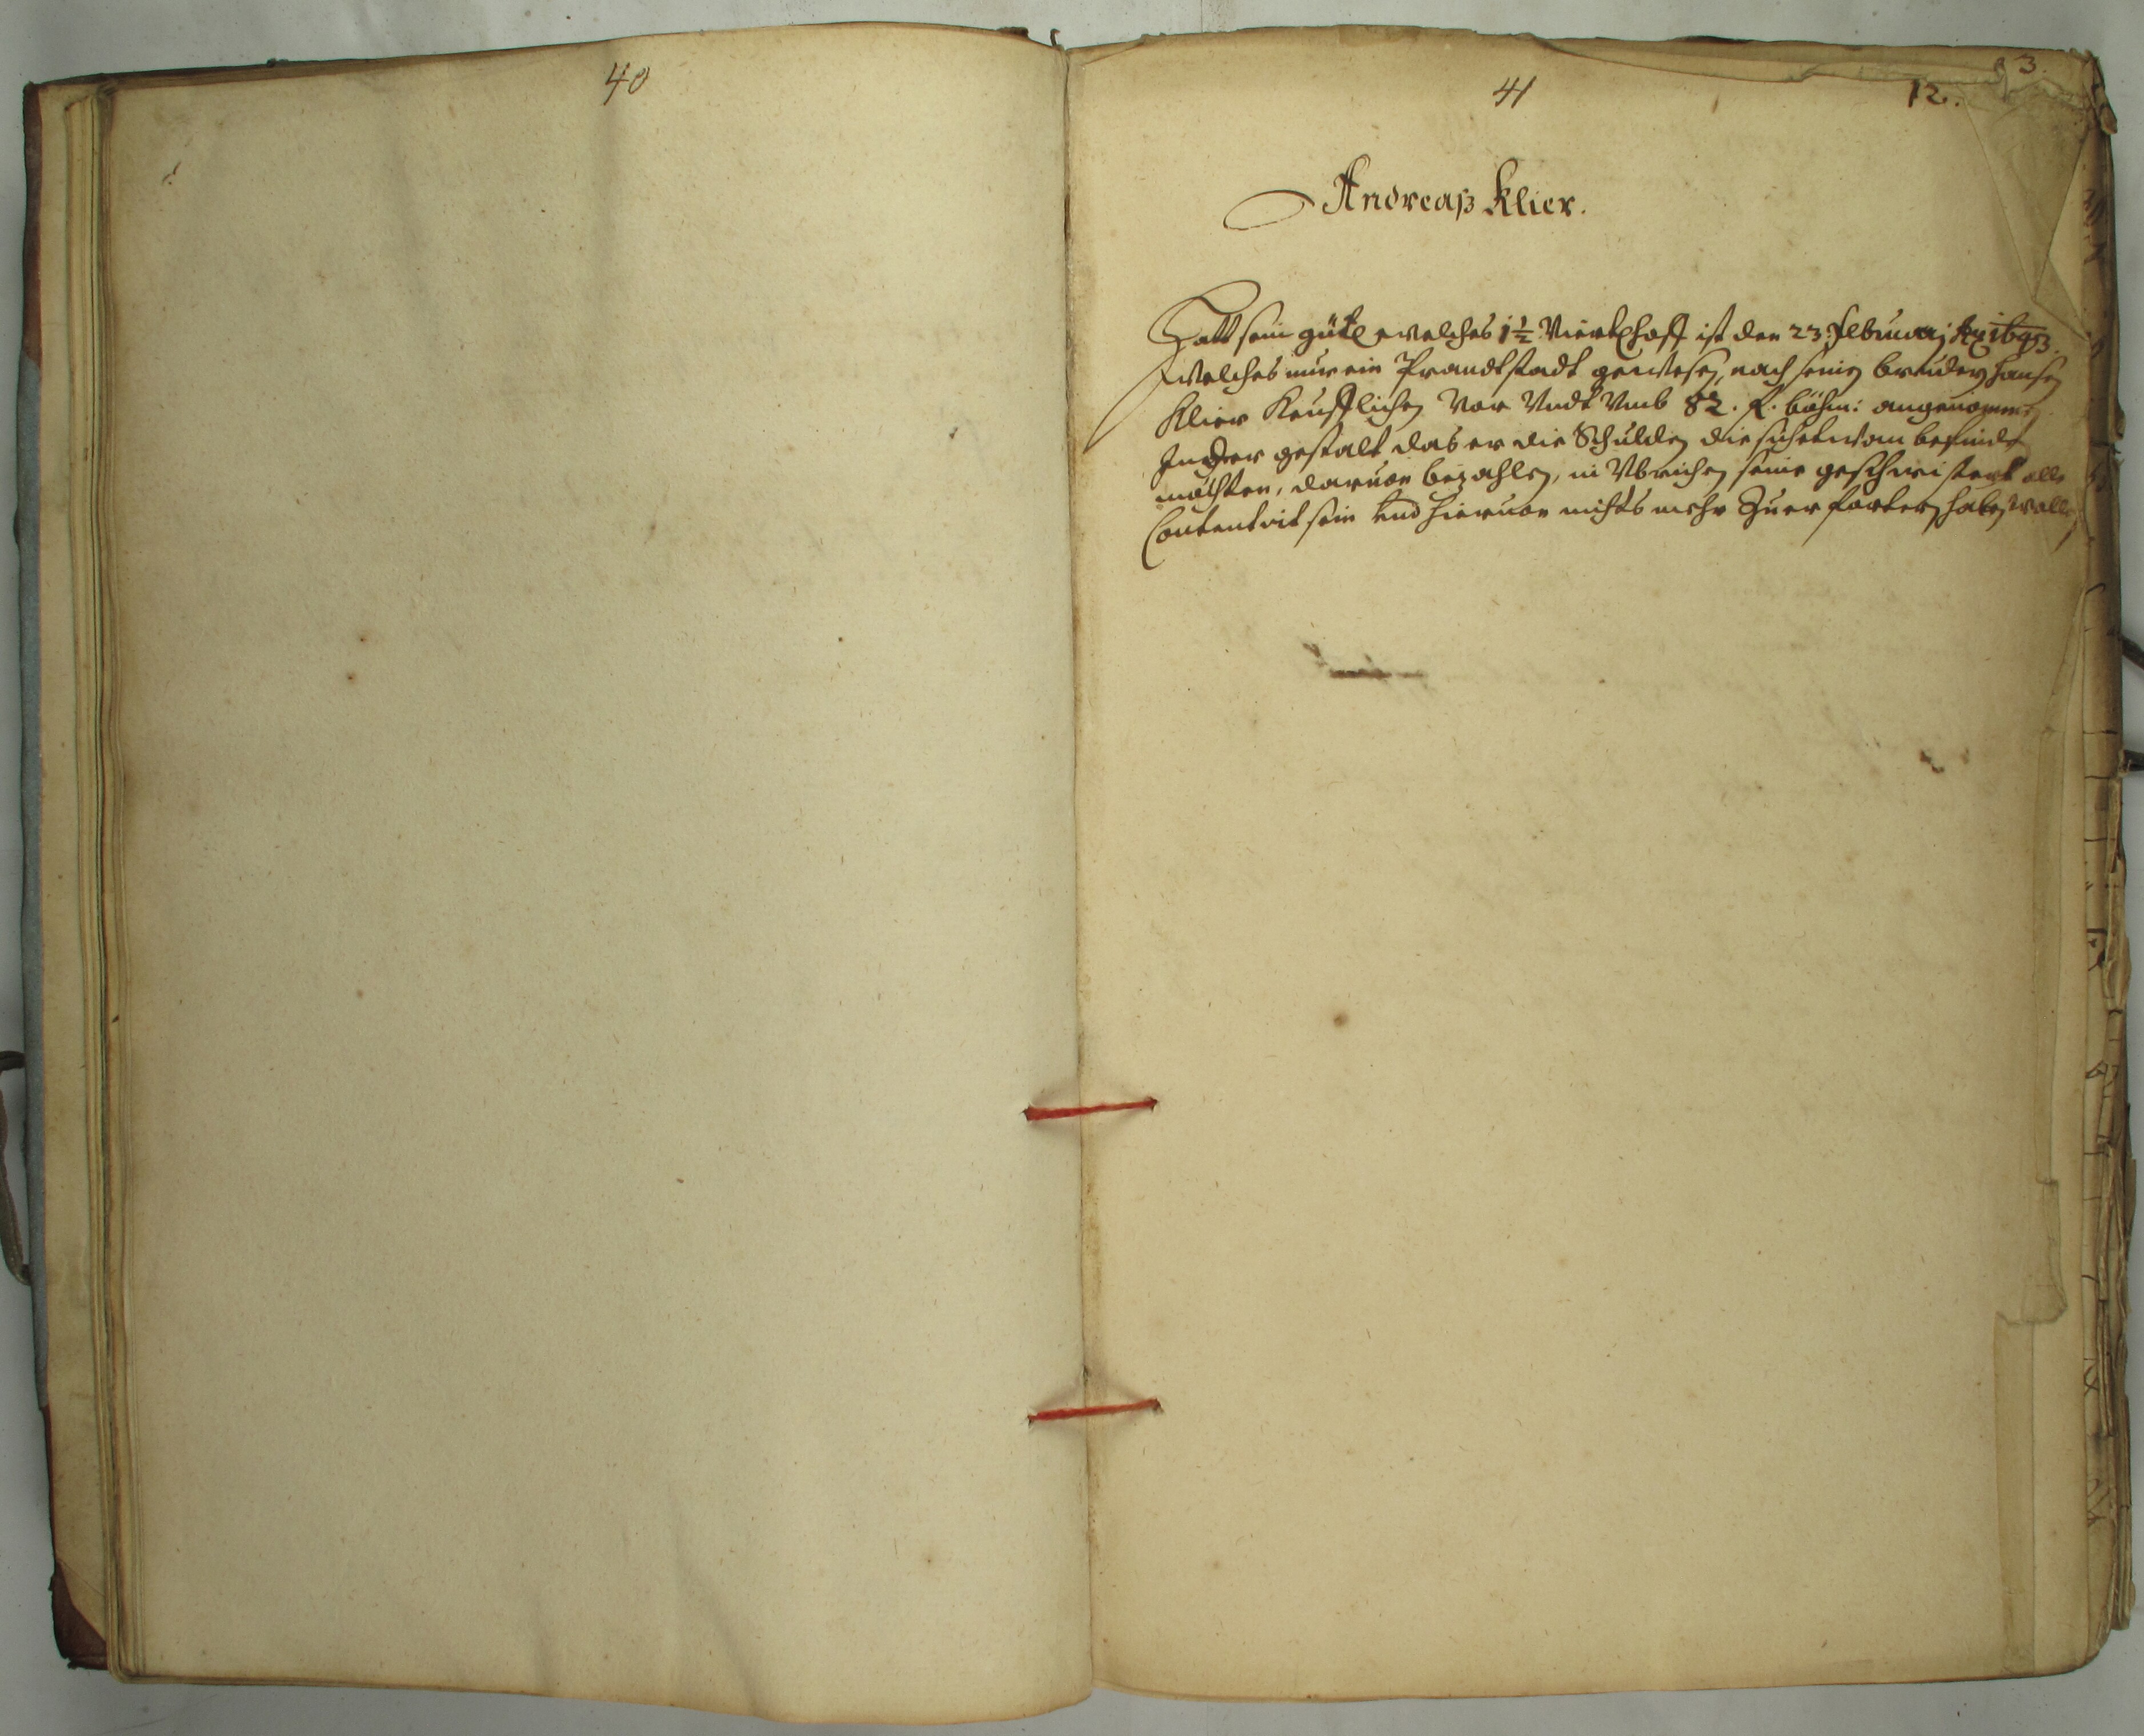 40
41
12.
3.
Andreaß Klier.
Hatt sein gütl welches 1½ Viertlhoff ist den 23. Februarj Ao 1693.
welches nur ein Prandtstadt gewesen, nach seinen brudern Hansen
Klier Keufflichen Vor Vndt Vmb 82. f. böhm: angenommen
In der gestalt das er die Schulden die sich etwan befinden
möchten, daruon bezahlen, in Vbrichen seine geschwistert alle
Contentirt sein Vnd hieruon nichts mehr Zuerfortern haben wollen